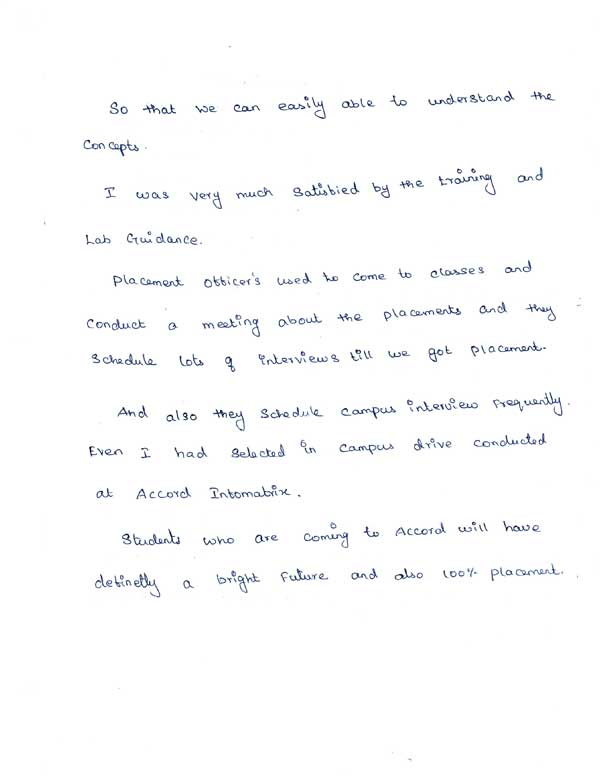 So that we can easily able to understand the
Concepts.
I was very much satisfied by the training and
Lab Guidance.
Placement officer's used to come to classes and
conduct a meeting about the placements and they
schedule lots of interviews till we got placement.
And also they schedule campus interview frequently.
Even I had selected in campus drive conducted
at Accord Infomatrix.
Students who are coming to Accord will have
definetly a bright future and also 100% placement.